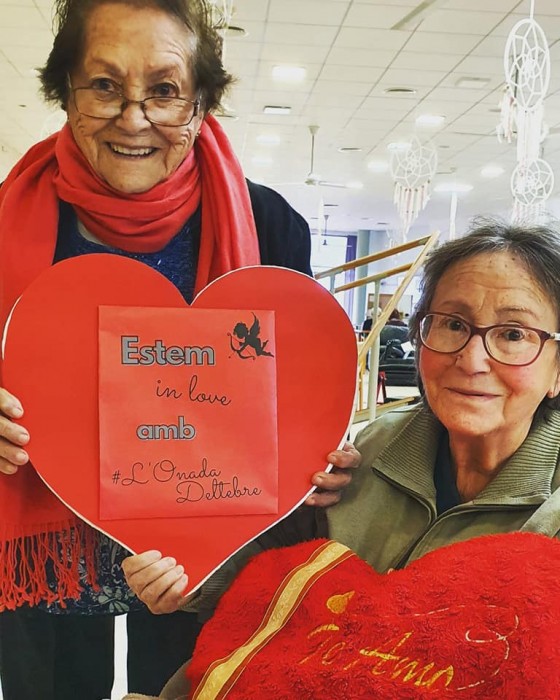 Estem
in love
amb
#L'Onada
Deltebre
Te Amo